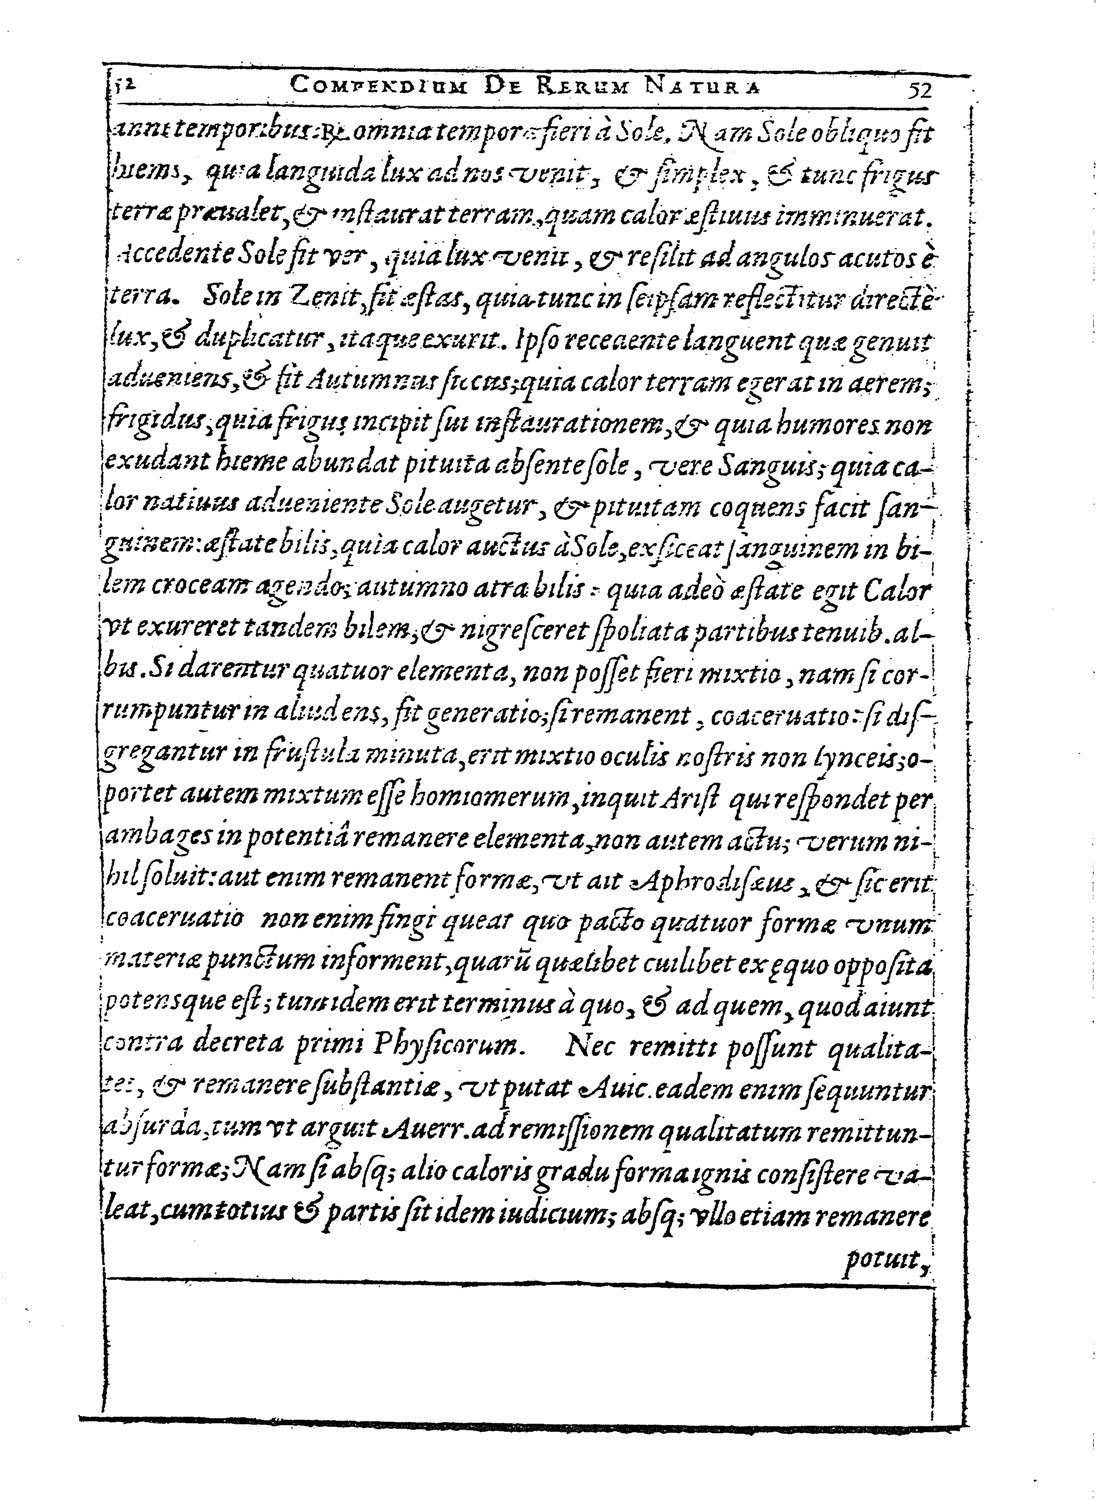 52 COMPENDIUM DE RERUM NATURA 52
anni temporibus: ℞. omnia tempora fieri à Sole. Nam Sole obliquo fit
hiems, quia languida lux ad nos venit, & simplex, & tunc frigus
terræ præualet, & instaurat terram, quam calor æstiuus imminuerat.
Accedente Sole fit ver, quia lux venit, & resilit ad angulos acutos è
terra. Sole in Zenit, fit æstas, quia tunc in seipsam reflectitur directè
lux, & duplicatur, itaque exurit. Ipso recedente languent quæ genuit
adueniens, & fit Autumnus siccus; quia calor terram egerat in aerem;
frigidus, quia frigus incipit sui instaurationem, & quia humores non
exudant hieme abundat pituita absente sole, vere Sanguis; quia ca-
lor natiuus adueniente Sole augetur, & pituitam coquens facit san-
guinem: æstate bilis, quia calor auctus à Sole, exsiccat sanguinem in bi-
lem croceam agendo; autumno atra bilis: quia adeò æstate egit Calor
vt exureret tandem bilem, & nigresceret spoliata partibus tenuib. al-
bis. Si darentur quatuor elementa, non posset fieri mixtio, nam si cor-
rumpuntur in aliud ens, fit generatio; si remanent, coaceruatio: si dis-
gregantur in frustula minuta, erit mixtio oculis nostris non lynceis; o-
portet autem mixtum esse homiomerum, inquit Arist qui respondet per
ambages in potentiâ remanere elementa, non autem actu; verum ni-
hil soluit: aut enim remanent formæ, vt ait Aphrodisæus, & sic erit
coaceruatio non enim fingi queat quo pacto quatuor formæ vnum
materiæ punctum informent, quarū quælibet cuilibet ex ęquo opposita
potensque est; tum idem erit terminus à quo, & ad quem, quod aiunt
contra decreta primi Physicorum. Nec remitti possunt qualita-
tes, & remanere substantiæ, vt putat Auic. eadem enim sequuntur
absurda, tum vt arguit Auerr. ad remissionem qualitatum remittun-
tur formæ; Nam si absq; alio caloris gradu forma ignis consistere va-
leat, cum totius & partis sit idem iudicium; absq; vllo etiam remanere
potuit,